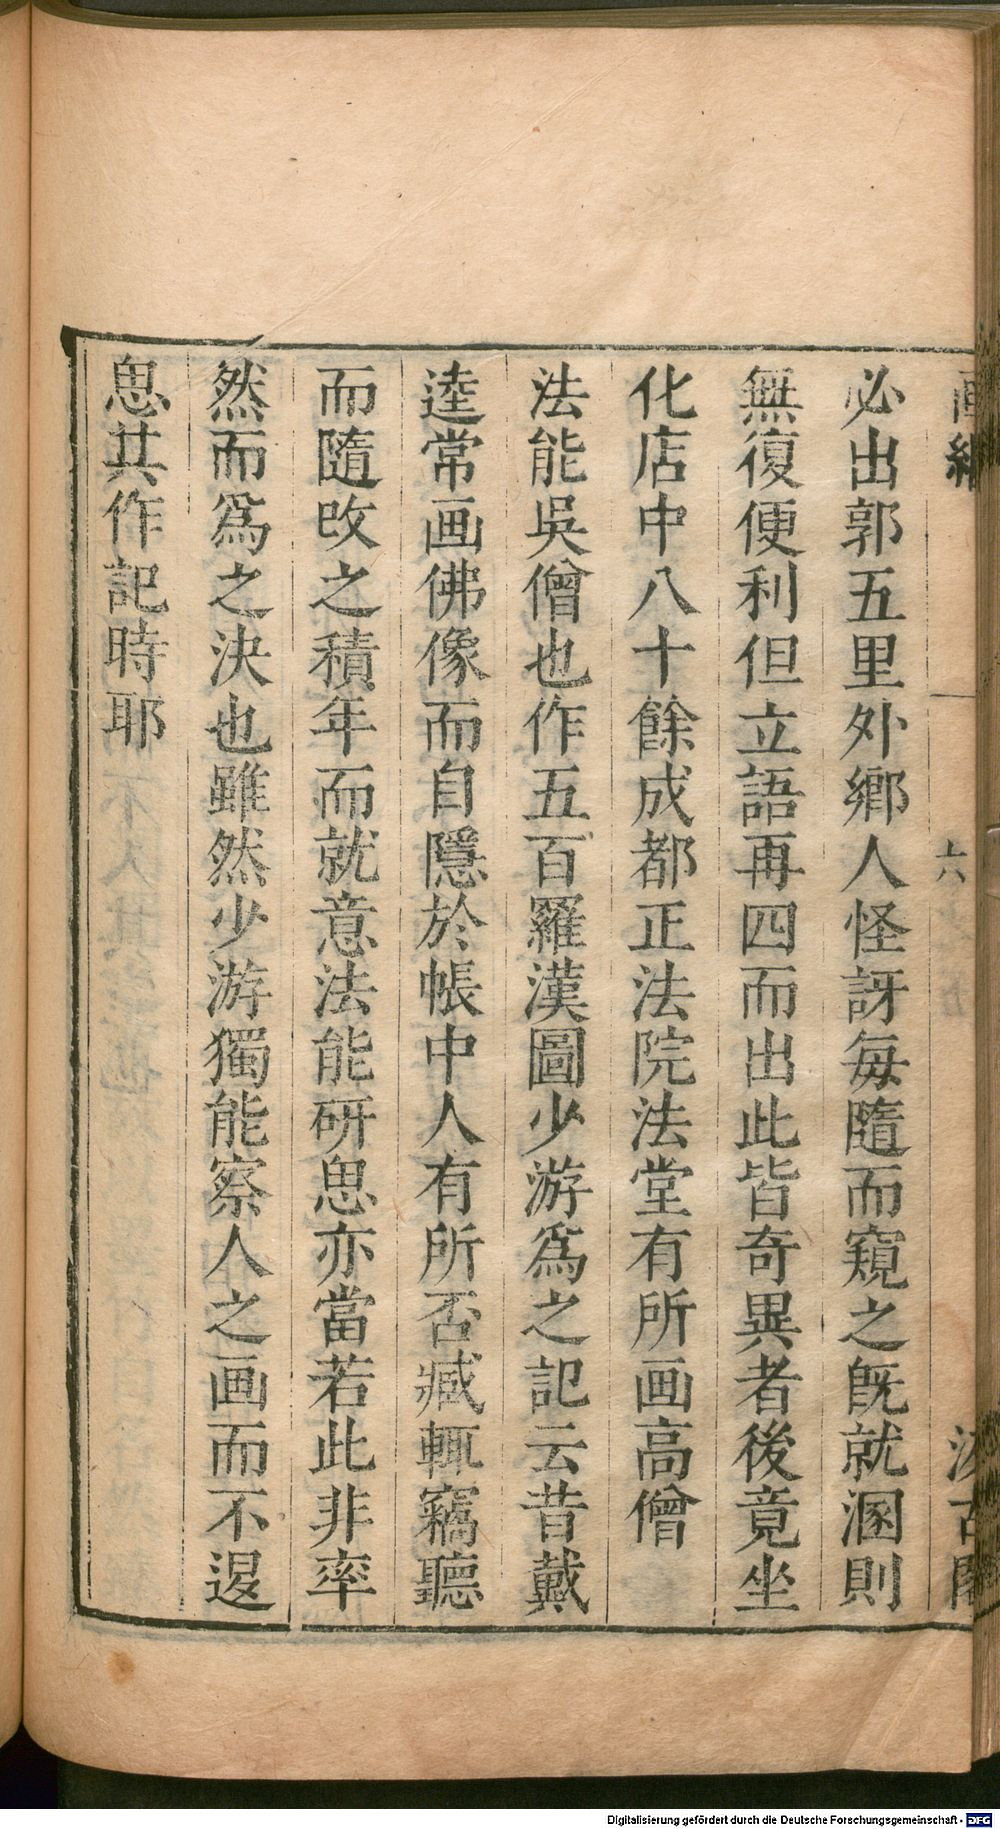 必出郭五里外鄉人怪訝每隨而窺之旣就溷則
無復便利但立語再四而出此皆奇異者後竟坐
化店中八十餘成都正法院法堂有所画高僧
法能吳僧也作五百羅漢圖少游爲之記云昔戴
逵常画佛像而自隱於帳中人有所否臧輒竊聽
而隨改之積年而就意法能研思亦當若此非率
然而爲之決也雖然少游獨能察人之画而不遑
思其作記時耶
六
汲古閣
Digitalisierung gefördert durch die Deutsche Forschungsgemeinschaft - DFG